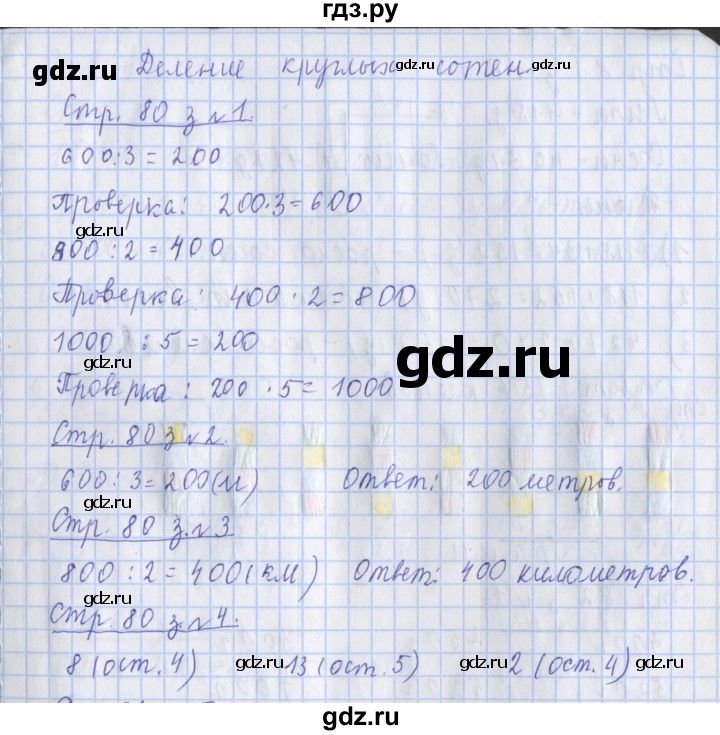 гдз.ру
Деление круглых сотен
gdz.ru gdz.ru gdz.ru
Стр. 80 з.№1.
600:3=200
Проверка: 200·3=600
gdz.ru
800:2=400
Проверка: 400·2=800
1000:5=200
gdz.ru
gdz.ru
Проверка: 200·5=1000
Стр. 80 з №2.
600:3=200(м) Ответ: 200 метров.
gdz.ru
Стр. 80 з.№3
800:2=400(км) Ответ: 400 километров.
gdz.ru
Стр. 80 з.№4.
8 (ост. 4) 13 (ост. 5) 2 (ост. 4)
gdz.ru gdz.ru gdz.ru
gdz.ru